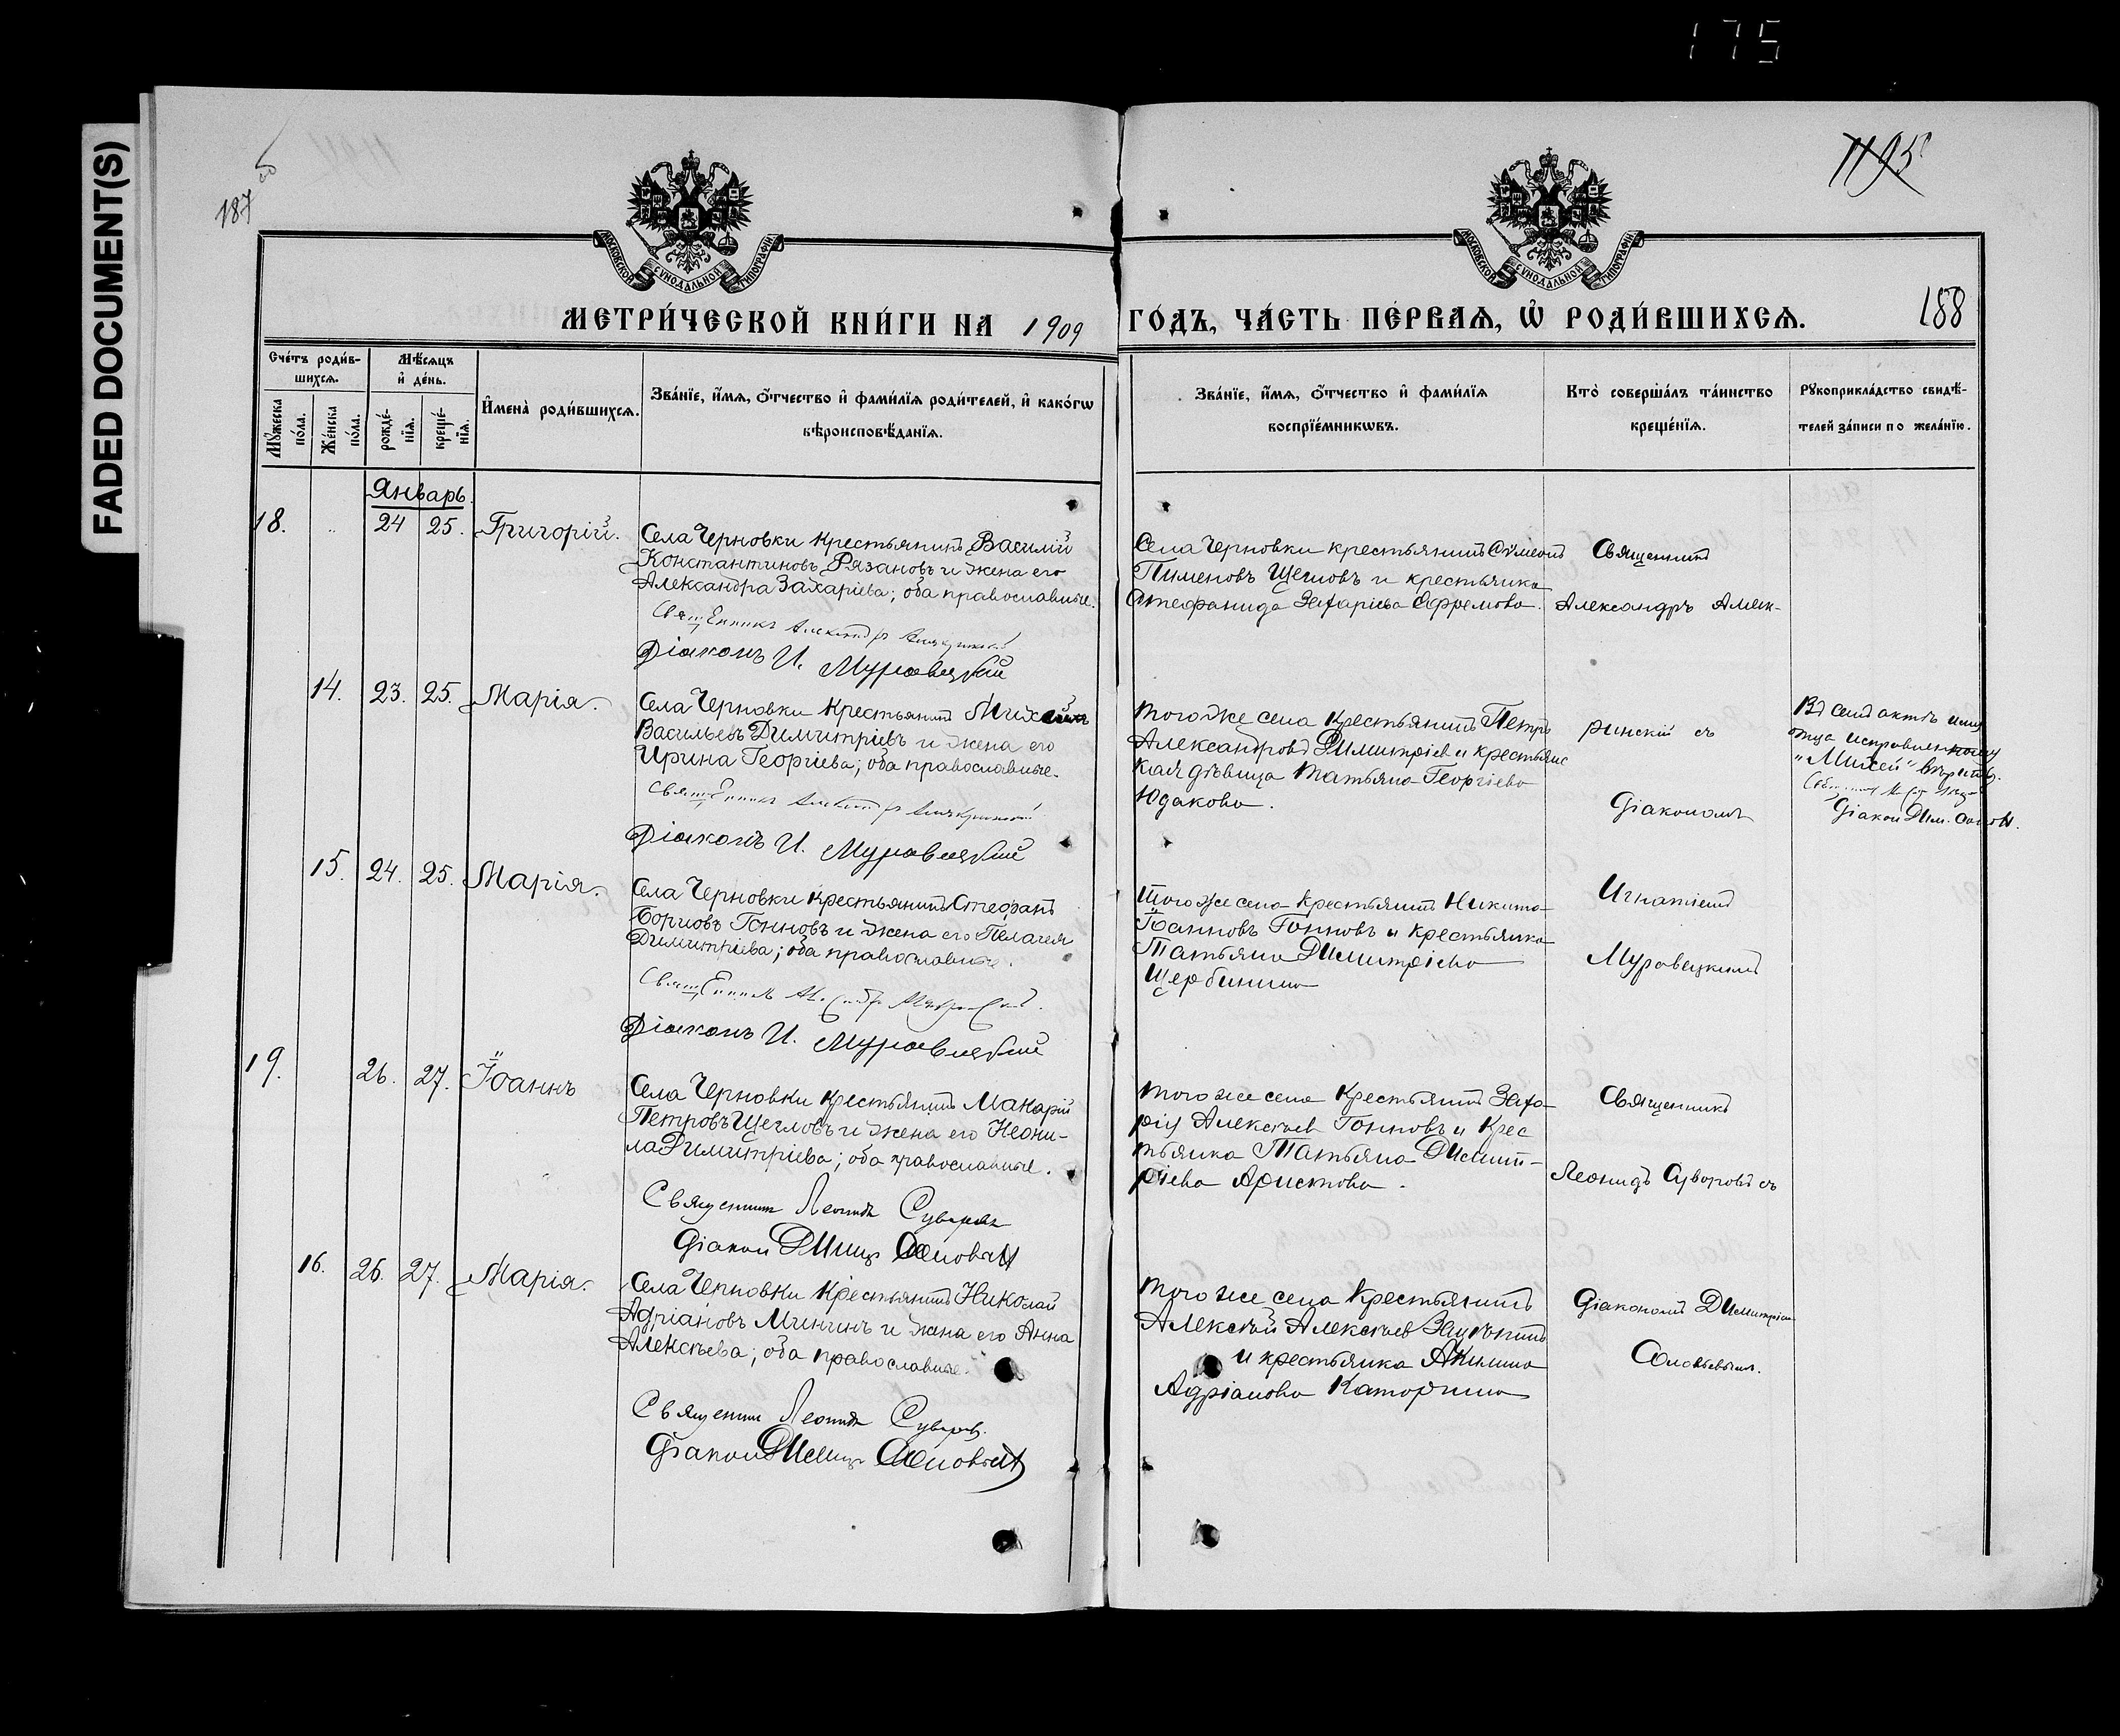 175
FADED DOCUMENT(S)
187 об
1195
МОСКОВСКОЙ СѴНОДАЛЬНОЙ ТИПОГРАФІИ
МОСКОВСКОЙ СѴНОДАЛЬНОЙ ТИПОГРАФІИ
МЕТРИ́ЧЕСКОЙ КНИ́ГИ НА 1909 ГО́ДЪ, ЧА́СТЬ ПЕ́РВАѦ, Ѡ҆ РОДИ́ВШИХСѦ.
188
Сче́тъ роди́в-
шихсѧ.
Мꙋ́жеска по́ла.
Же́нска по́ла.
Мѣ́сѧцъ
и҆ де́нь.
рожде́-
нїѧ.
креще́-
нїѧ.
И҆мена̀ роди́вшихсѧ.
Зва́нїе, и҆́мѧ, ѻ҆́тчество и҆ фами́лїѧ роди́телей, и҆ како́гѡ
вѣроисповѣ́данїѧ.
Зва́нїе, и҆́мѧ, ѻ҆́тчество и҆ фами́лїѧ
воспрїе́мникѡвъ.
Кто̀ соверша́лъ та́инство
креще́нїѧ.
Рꙋкоприкла́дство свидѣ́-
телей за́писи по жела́нїю.
Январь.
18.
24
25.
Григорій.
Села Черновки крестьянинъ Василій
Константиновъ Рязановъ и жена его
Александра Захаріева; оба православные.
Священникъ Александръ
Діаконъ И. Муравецкій
Села Черновки крестьянинъ Сѵмеонъ
Пименовъ Щегловъ и крестьянка
Стефанида Захаріева Ефремова.
Священникъ
Александръ Алек-
14.
23.
25.
Марія.
Села Черновки крестьянинъ
Васильевъ Димитріевъ и жена его
Ирина Георгіева; оба православные.
Священникъ Александръ
Діаконъ И. Муравецкій
Того же села крестьянинъ Петръ
Александровъ Димитріев и крестьянс
кая дѣвица Татьяна Георгіева
Юдакова.
ринскій съ
Діакономъ
Въ семъ актѣ имя
отца исправленному
"Мих̶е̶й"
Діакон Дим. Солов.
15.
24.
25.
Марія.
Села Черновки крестьянинъ Стефанъ
Борисовъ Гонновъ и жена его Пелагея
Димитріева; оба православные.
Священникъ
Діаконъ И. Муравецкій
Того же села крестьянинъ Никита
Іоанновъ Гонновъ и крестьянка
Татьяна Димитріева
Щербинина
Игнатіемъ
Муравецкимъ
19.
26.
27.
Іоаннъ
Села Черновки крестьянинъ Макарій
Петровъ Щегловъ и жена его Неони-
ла Димитріева; оба православные.
Священникъ Леонидъ Суворовъ
Діакон Димитр Соловьев
Того же села крестьянинъ Заха-
рій Алексѣевъ Гоннов и крес
тьянка Татьяна Димит-
ріева Аристова.
Священникъ
Леонидъ Суворовъ съ
16.
26.
27.
Марія.
Села Черновки крестьянинъ Николай
Адріановъ Мининъ и жена его Анна
Алексѣева; оба православные.
Священник Леонидъ Суворовъ.
Діакон Димитр Соловьев
Того же села крестьянинъ
Алексѣй Алексѣев
и крестьянка Акилина
Адріанова Каторгина
Діакономъ Димитріем
Соловьевым.